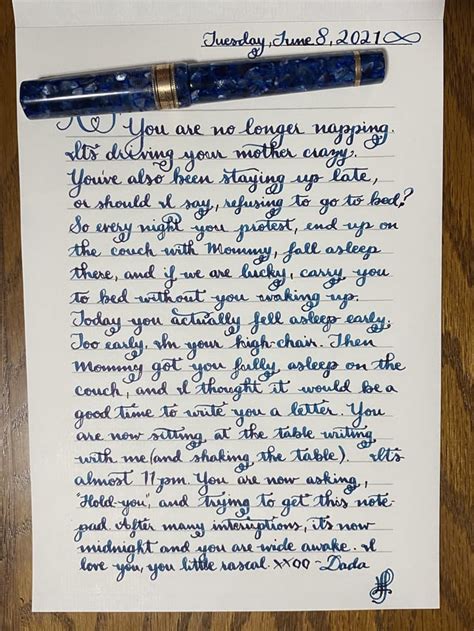 Tuesday, June 8, 2021
You are no longer napping.
It's driving your mother crazy.
You've also been staying up late,
or should I say, refusing to go to bed?
So every night you protest, end up on
the couch with Mommy, fall asleep
there, and if we are lucky, carry you
to bed without you waking up.
Today you actually fell asleep early.
Too early. In your high-chair. Then
Mommy got you fully asleep on the
couch, and I thought it would be a
good time to write you a letter. You
are now sitting at the table writing
with me (and shaking the table). It's
almost 11pm. You are now asking,
"Hold you", and trying to get this note-
pad. After many interuptions, it's now
midnight and you are wide awake. I
love you, you little rascal. xxoo -Dada